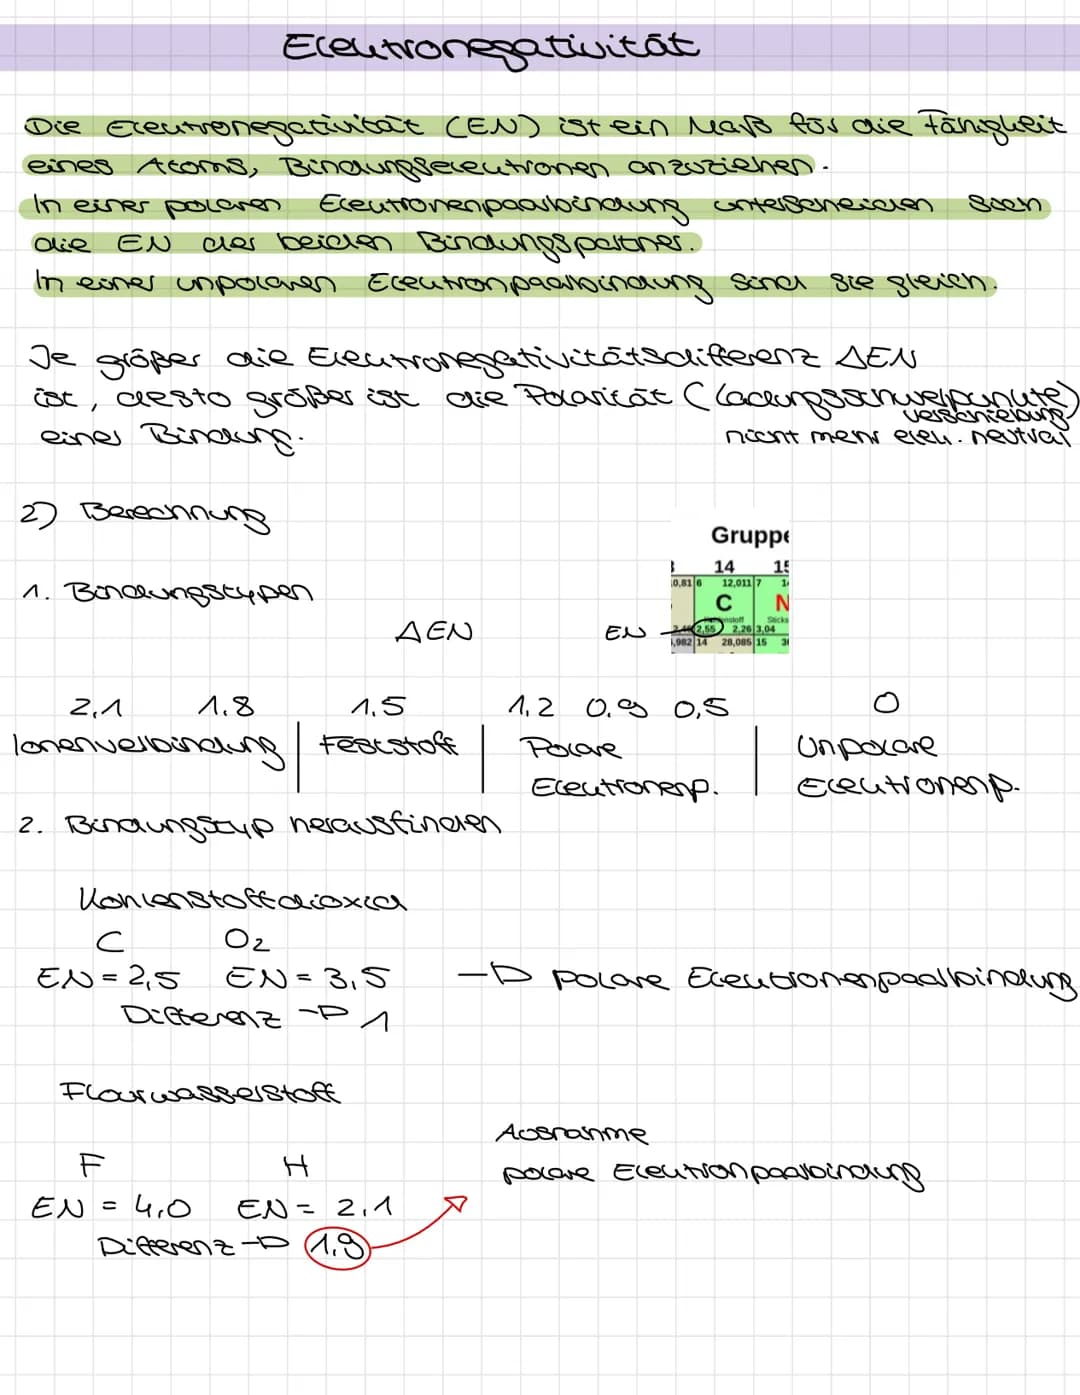 Elektronegativität
Die Elektronegativität (EN) ist ein Maß für die Fähigkeit
eines Atoms, Bindungselektronen anzuziehen.
In einer polaren Elektronenpaarbindung unterscheiden sich
die EN der beiden Bindungspartner.
In einer unpolaren Elektronpaarbindung sind sie gleich.
Je größer die Elektronegativitätsdifferenz ΔEN
ist, desto größer ist die Polarität (Ladungsschwerpunkte)
verschiebung
einer Bindung.
nicht mehr elek. neutral
2) Berechnung
Gruppe
14 15
1. Bindungstypen
0,81 6 12,011 7 14
C N
Sticks
ΔEN
EN
2,55 2,26 3,04
,982 14 28,085 15 30
2,1 1.8 1,5 1,2 0.9 0,5 0
Ionenverbindung | Feststoff | Polare | Unpolare
Elektronenp. Elektronenp.
2. Bindungstyp herausfinden
Kohlenstoffdioxid
C O2
EN = 2,5 EN = 3,5 → polare Elektronenpaarbindung
Differenz → 1
Flourwasserstoff
Ausnahme
F H
polare Elektronpaarbindung
EN = 4,0 EN = 2,1
Differenz → 1,9